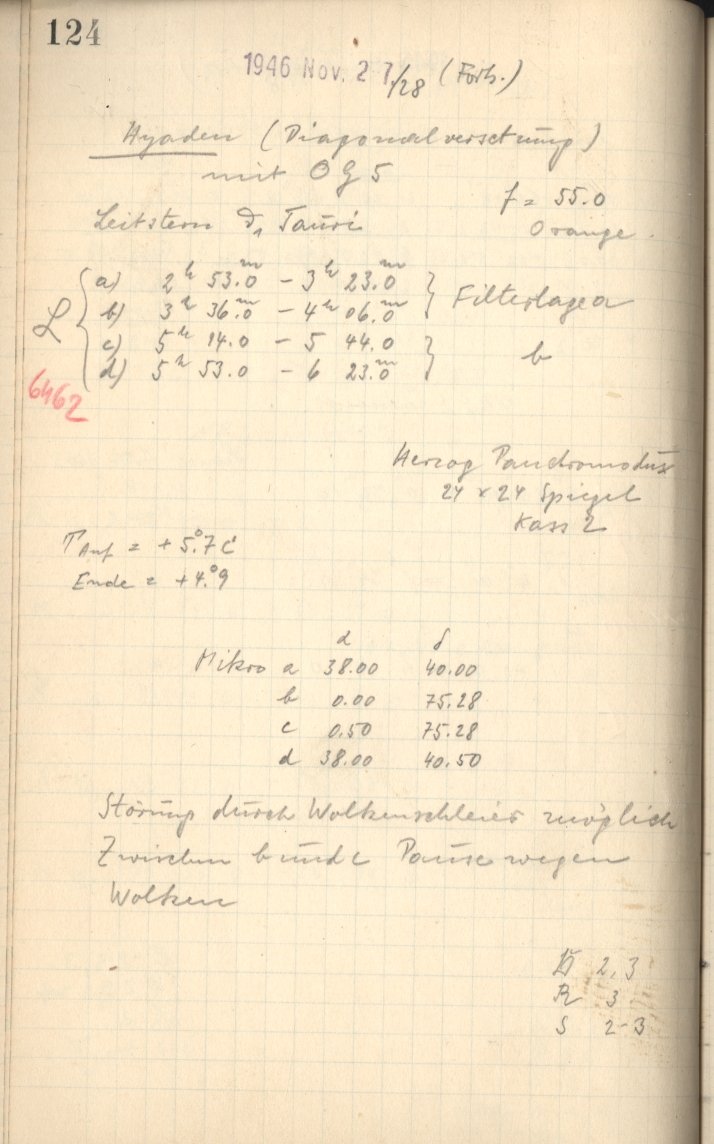 124
1946 Nov. 27/28 (Forts.)
Hyaden (Diagonalversetzung)
mit OG5
f = 55.0
Leitstern δ₁ Tauri
Orange.
a) 2ʰ 53.0ᵐ - 3ʰ 23.0ᵐ } Filterlage a
L { b) 3ʰ 36.0ᵐ - 4ʰ 06.0ᵐ
c) 5ʰ 14.0 - 5 44.0 } b
d) 5ʰ 53.0 - 6 23.0ᵐ
6462
Herzog Panchromodux
24 x 24 Spiegel
Kass 2
T Anf = + 5°.7 C
Ende = + 4°.9
α δ
Mikro a 38.00 40.00
b 0.00 75.28
c 0.50 75.28
d 38.00 40.50
Störung durch Wolkenschleier möglich
Zwischen b und c Pause wegen
Wolken
2,3
R 3
S 2-3